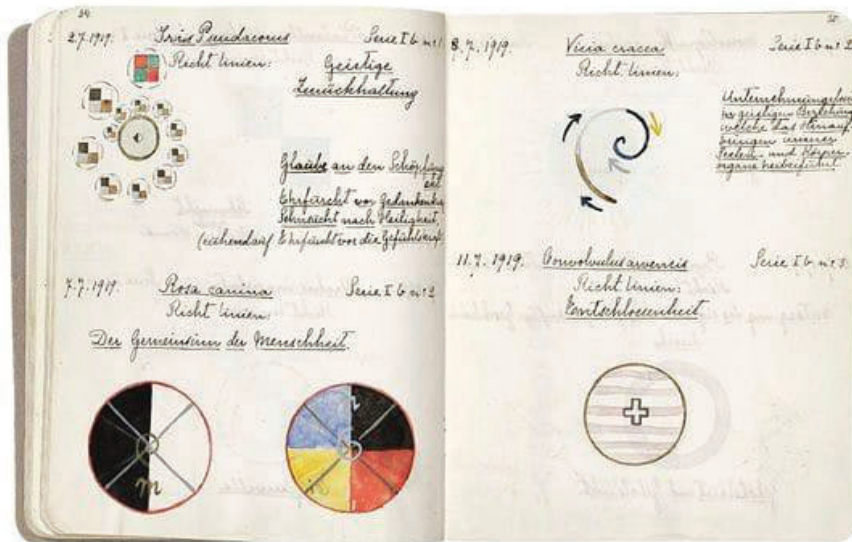 34
2.7.1919. Iris Pseudacorus Serie I b nr 1
Richt linien: Geistige
Zurückhaltung
Glaube an den Schöpfung
Ehrfurcht vor
Sehnsucht nach Heiligkeit,
Ehrfurcht vor die Gefühlskraft
7.7.1919. Rosa canina Serie I b nr 2
Richt linien:
Der Gemeinsinn der Menschheit.
m
i
35
8.7.1919. Vicia cracca Serie I b nr 2
Richt linien:
Unternehmungslust
in geistigen Beziehung
welche das Hinauf-
bringen unserer
Seelen- und Körper
organe herbeiführt.
11.7.1919. Convolvulus arvensis Serie I b nr 3
Richt linien:
Entschlossenheit